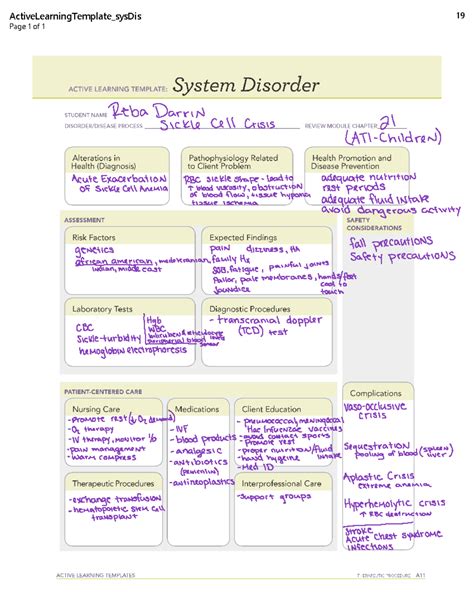 ActiveLearningTemplate_sysDis
19
Page 1 of 1
ACTIVE LEARNING TEMPLATE: System Disorder
STUDENT NAME Reba Darrin
DISORDER/DISEASE PROCESS Sickle Cell Crisis
REVIEW MODULE CHAPTER 21
(ATI-Children)
Alterations in
Health (Diagnosis)
Acute Exacerbation
of Sickle Cell Anemia
Pathophysiology Related
to Client Problem
RBC sickle shape - lead to
↑ blood viscosity, obstruction
of blood flow, tissue hypoxia
tissue ischemia
Health Promotion and
Disease Prevention
adequate nutrition
rest periods
adequate fluid intake
avoid dangerous activity
ASSESSMENT
SAFETY
CONSIDERATIONS
Risk Factors
genetics
african american, mediterranean,
indian, middle east
Expected Findings
pain dizziness, HA
family Hx
SOB, fatigue, painful joints
Pallor, pale membranes, hands/feet
cool to
touch
jaundice
fall precautions
Safety precautions
Laboratory Tests
CBC
Sickle-turbidity
hemoglobin electrophoresis
Hgb
WBC
bilirubin & reticulocyte
peripheral blood
smear
Diagnostic Procedures
- transcranial doppler
(TCD) test
PATIENT-CENTERED CARE
Complications
Nursing Care
-Promote rest (↓ O2 demand)
-O2 therapy
-IV therapy, monitor I/O
-pain management
-warm compress
Medications
-IVF
-blood products
-analgesic
-antibiotics
(penicillin)
-antineoplastics
Client Education
- pneumococcal, meningococcal
Hae influenzae vaccines
-avoid contact sports
-Promote rest
-proper nutrition/fluid
intake
-hand hygiene
-Med ID
Vaso-occlusive
crisis
Sequestration
pooling of blood (spleen)
liver
Aplastic Crisis
extreme anemia
Hyperhemolytic crisis
↑ RBC destruction
Stroke
Acute Chest syndrome
infections
Therapeutic Procedures
-exchange transfusion
-hematopoietic stem cell
transplant
Interprofessional Care
-support groups
ACTIVE LEARNING TEMPLATES
THERAPEUTIC PROCEDURE A11